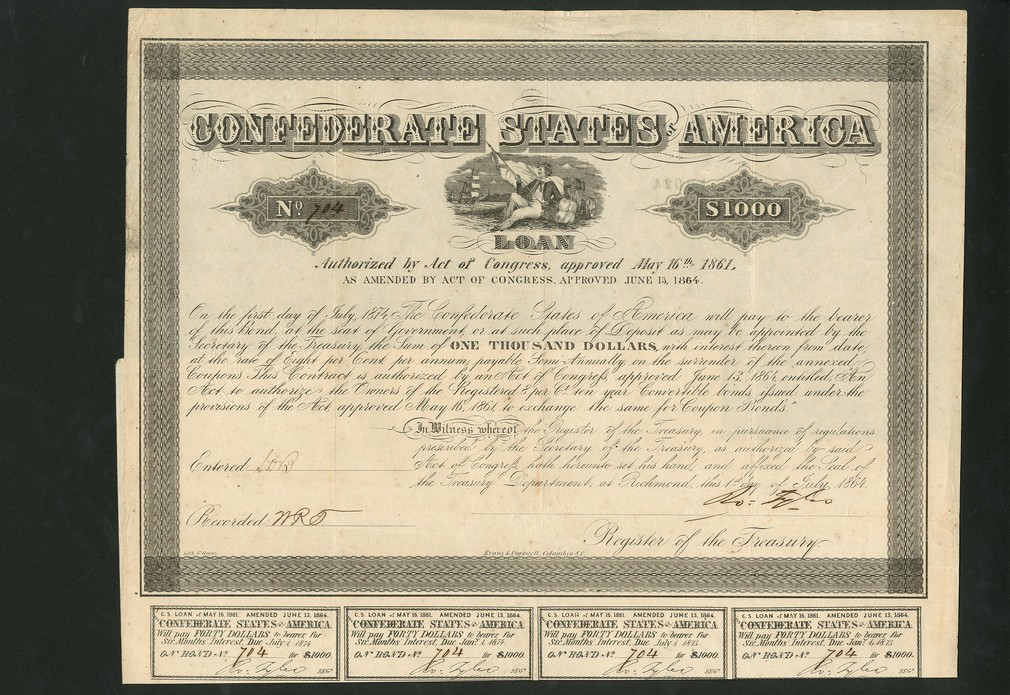 CONFEDERATE STATES OF AMERICA
No 704
$1000
LOAN
Authorized by Act of Congress, approved May 16th 1861,
AS AMENDED BY ACT OF CONGRESS, APPROVED JUNE 13, 1864.
On the first day of July, 1874, The Confederate States of America will pay to the bearer
of this Bond, at the seat of Government, or at such place of Deposit as may be appointed by the
Secretary of the Treasury, the Sum of ONE THOUSAND DOLLARS, with interest thereon from date,
at the rate of Eight per Cent. per annum, payable Semi-Annually on the surrender of the annexed
Coupons. This Contract is authorized by an Act of Congress approved June 13, 1864, entitled, "An
Act to authorize the Owners of the Registered 8 per Ct. ten year Convertible bonds issued under the
provisions of the Act approved May 16, 1861, to exchange the same for Coupon Bonds."
In Witness whereof the Register of the Treasury, in pursuance of regulations
prescribed by the Secretary of the Treasury, as authorized by said
Act of Congress hath hereunto set his hand, and affixed the Seal of
the Treasury Department, at Richmond, this 1st day of July, 1864.
Entered
Ro: Tyler
Recorded WRT
Register of the Treasury.
Evans & Cogswell, Columbia S.C.
C.S. LOAN of MAY 16, 1861. AMENDED JUNE 13, 1864.
CONFEDERATE STATES OF AMERICA
Will pay FORTY DOLLARS to bearer for
Six Months Interest, Due July 1, 1874
ON BOND No 704 for $1000.
Ro: Tyler REGr
C.S. LOAN of MAY 16, 1861. AMENDED JUNE 13, 1864.
CONFEDERATE STATES OF AMERICA
Will pay FORTY DOLLARS to bearer for
Six Months Interest, Due Jany 1, 1874
ON BOND No 704 for $1000.
Ro: Tyler REGr
C.S. LOAN of MAY 16, 1861. AMENDED JUNE 13, 1864.
CONFEDERATE STATES OF AMERICA
Will pay FORTY DOLLARS to bearer for
Six Months Interest, Due July 1, 1873
ON BOND No 704 for $1000.
Ro: Tyler REGr
C.S. LOAN of MAY 16, 1861. AMENDED JUNE 13, 1864.
CONFEDERATE STATES OF AMERICA
Will pay FORTY DOLLARS to bearer for
Six Months Interest, Due Jany 1, 1873
ON BOND No 704 for $1000.
Ro: Tyler REGr